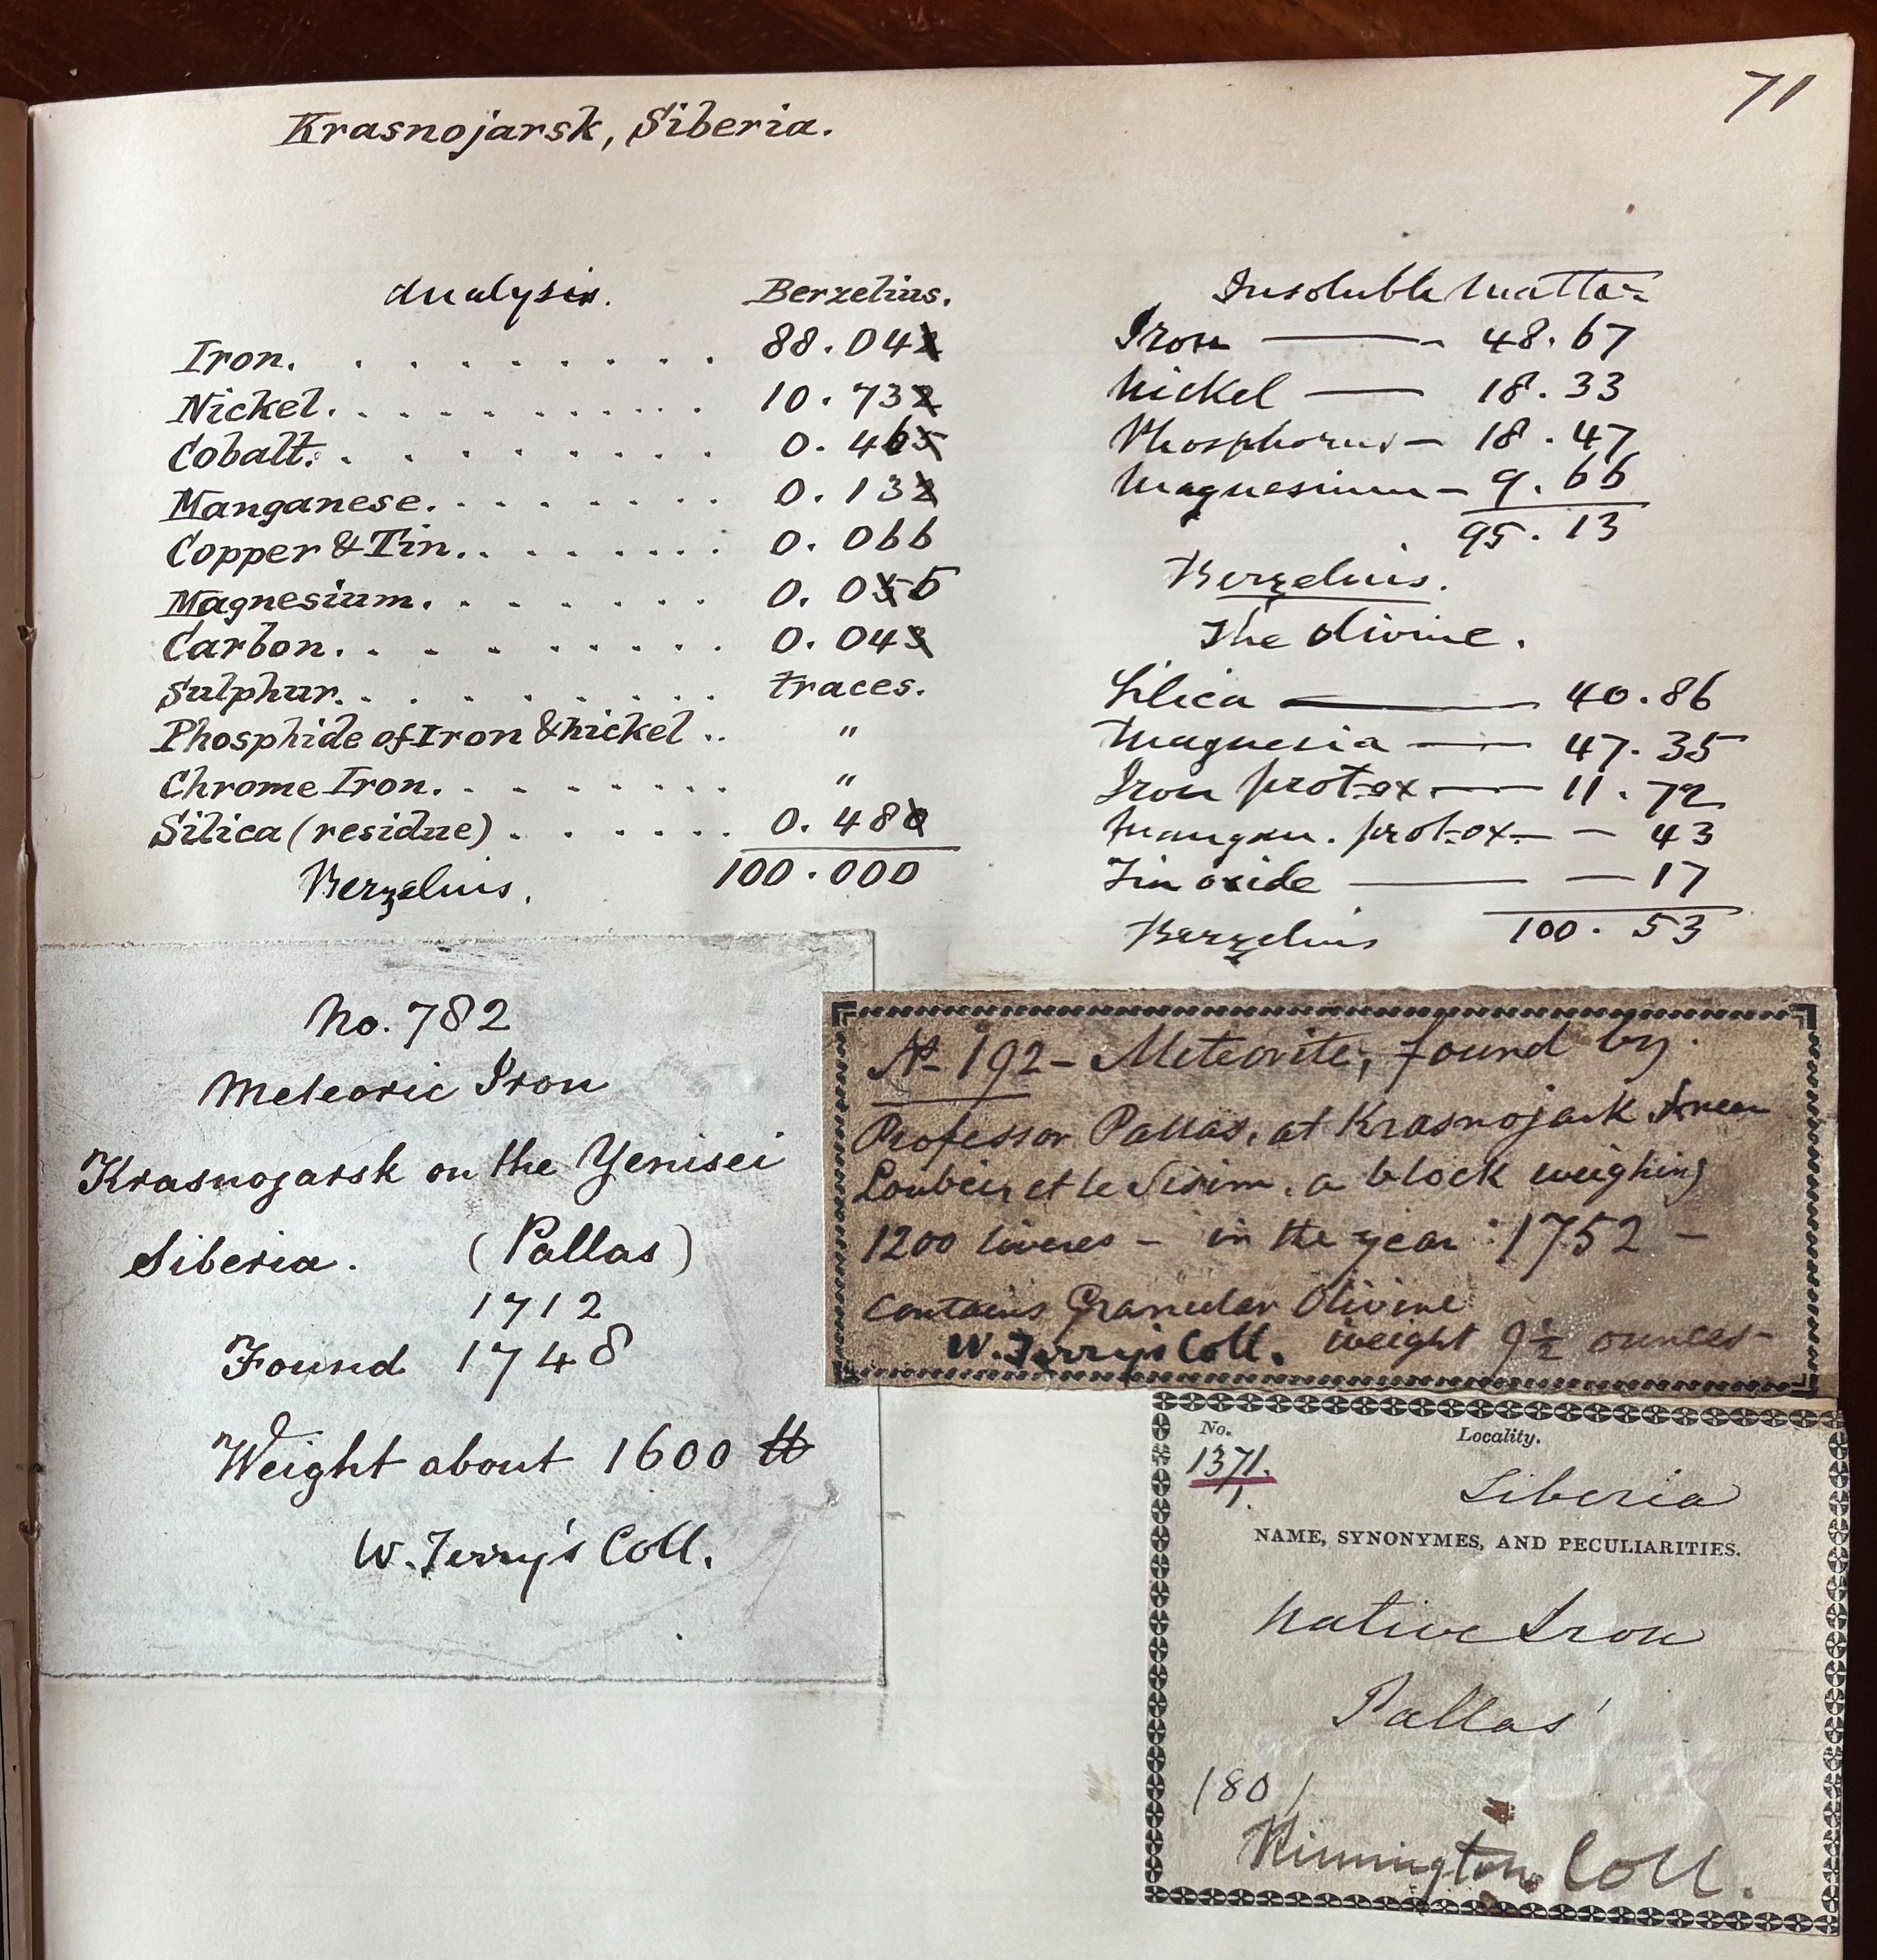 71
Krasnojarsk, Siberia.
Analysis. Berzelius.
Iron. . . . . . . . . . 88.042
Nickel. . . . . . . . . . . . 10.732
Cobalt. . . . . . . . . . 0.465
Manganese. . . . . . . . 0.132
Copper & Tin. . . . . . . . 0.066
Magnesium. . . . . . . 0.05 5
Carbon. . . . . . . . . . 0.043
Sulphur. . . . . . . . . . traces.
Phosphide of Iron & Nickel . . "
Chrome Iron. . . . . . . . "
Silica (residue) . . . . . . 0.480
Berzelius. 100.000
Insoluble Matter
Iron — 48.67
Nickel — 18.33
Phosphorus — 18.47
Magnesium — 9.66
95.13
Berzelius.
The Olivine.
Silica — 40.86
Magnesia — 47.35
Iron prot-ox — 11.72
Mangan. prot-ox — — 43
Tin oxide — — 17
Berzelius 100.53
No. 782
Meteoric Iron
Krasnojarsk on the Yenisei
Siberia. (Pallas)
1712
Found 1748
Weight about 1600 lb
W. Terry's Coll.
No 192 - Meteorite, found by
Professor Pallas, at Krasnojark
et le Sisim, a block weighing
1200 livres - in the year : 1752 -
contains Granular Olivine
W. Terry's Coll. weight 9½ ounces -
No. Locality.
1371. Siberia
1.
NAME, SYNONYMES, AND PECULIARITIES.
Native Iron
Pallas'
1801
Coll.